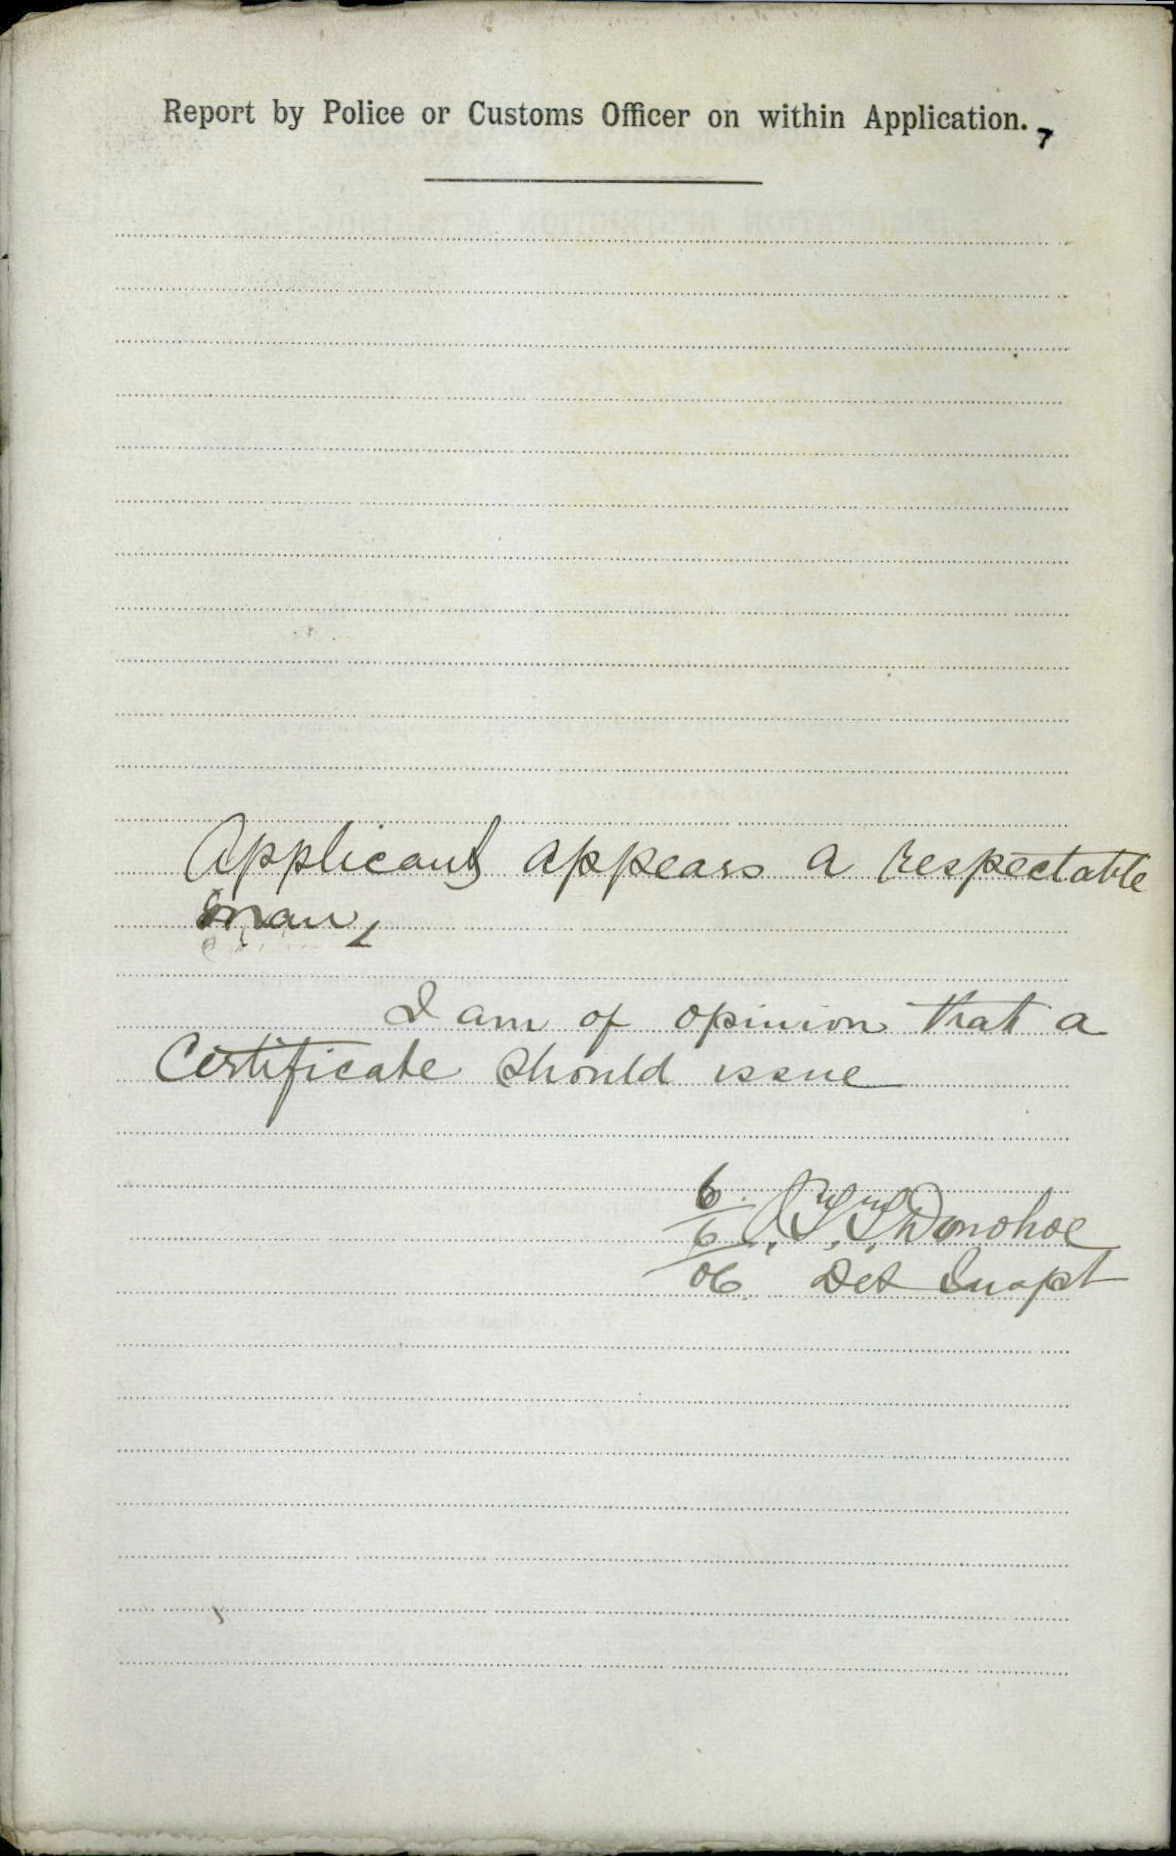 Report by Police or Customs Officer on within Application.
7
Applicant appears a respectable
man
I am of opinion that a
Certificate should issue
6/6/06 Donohoe
Det Inspt